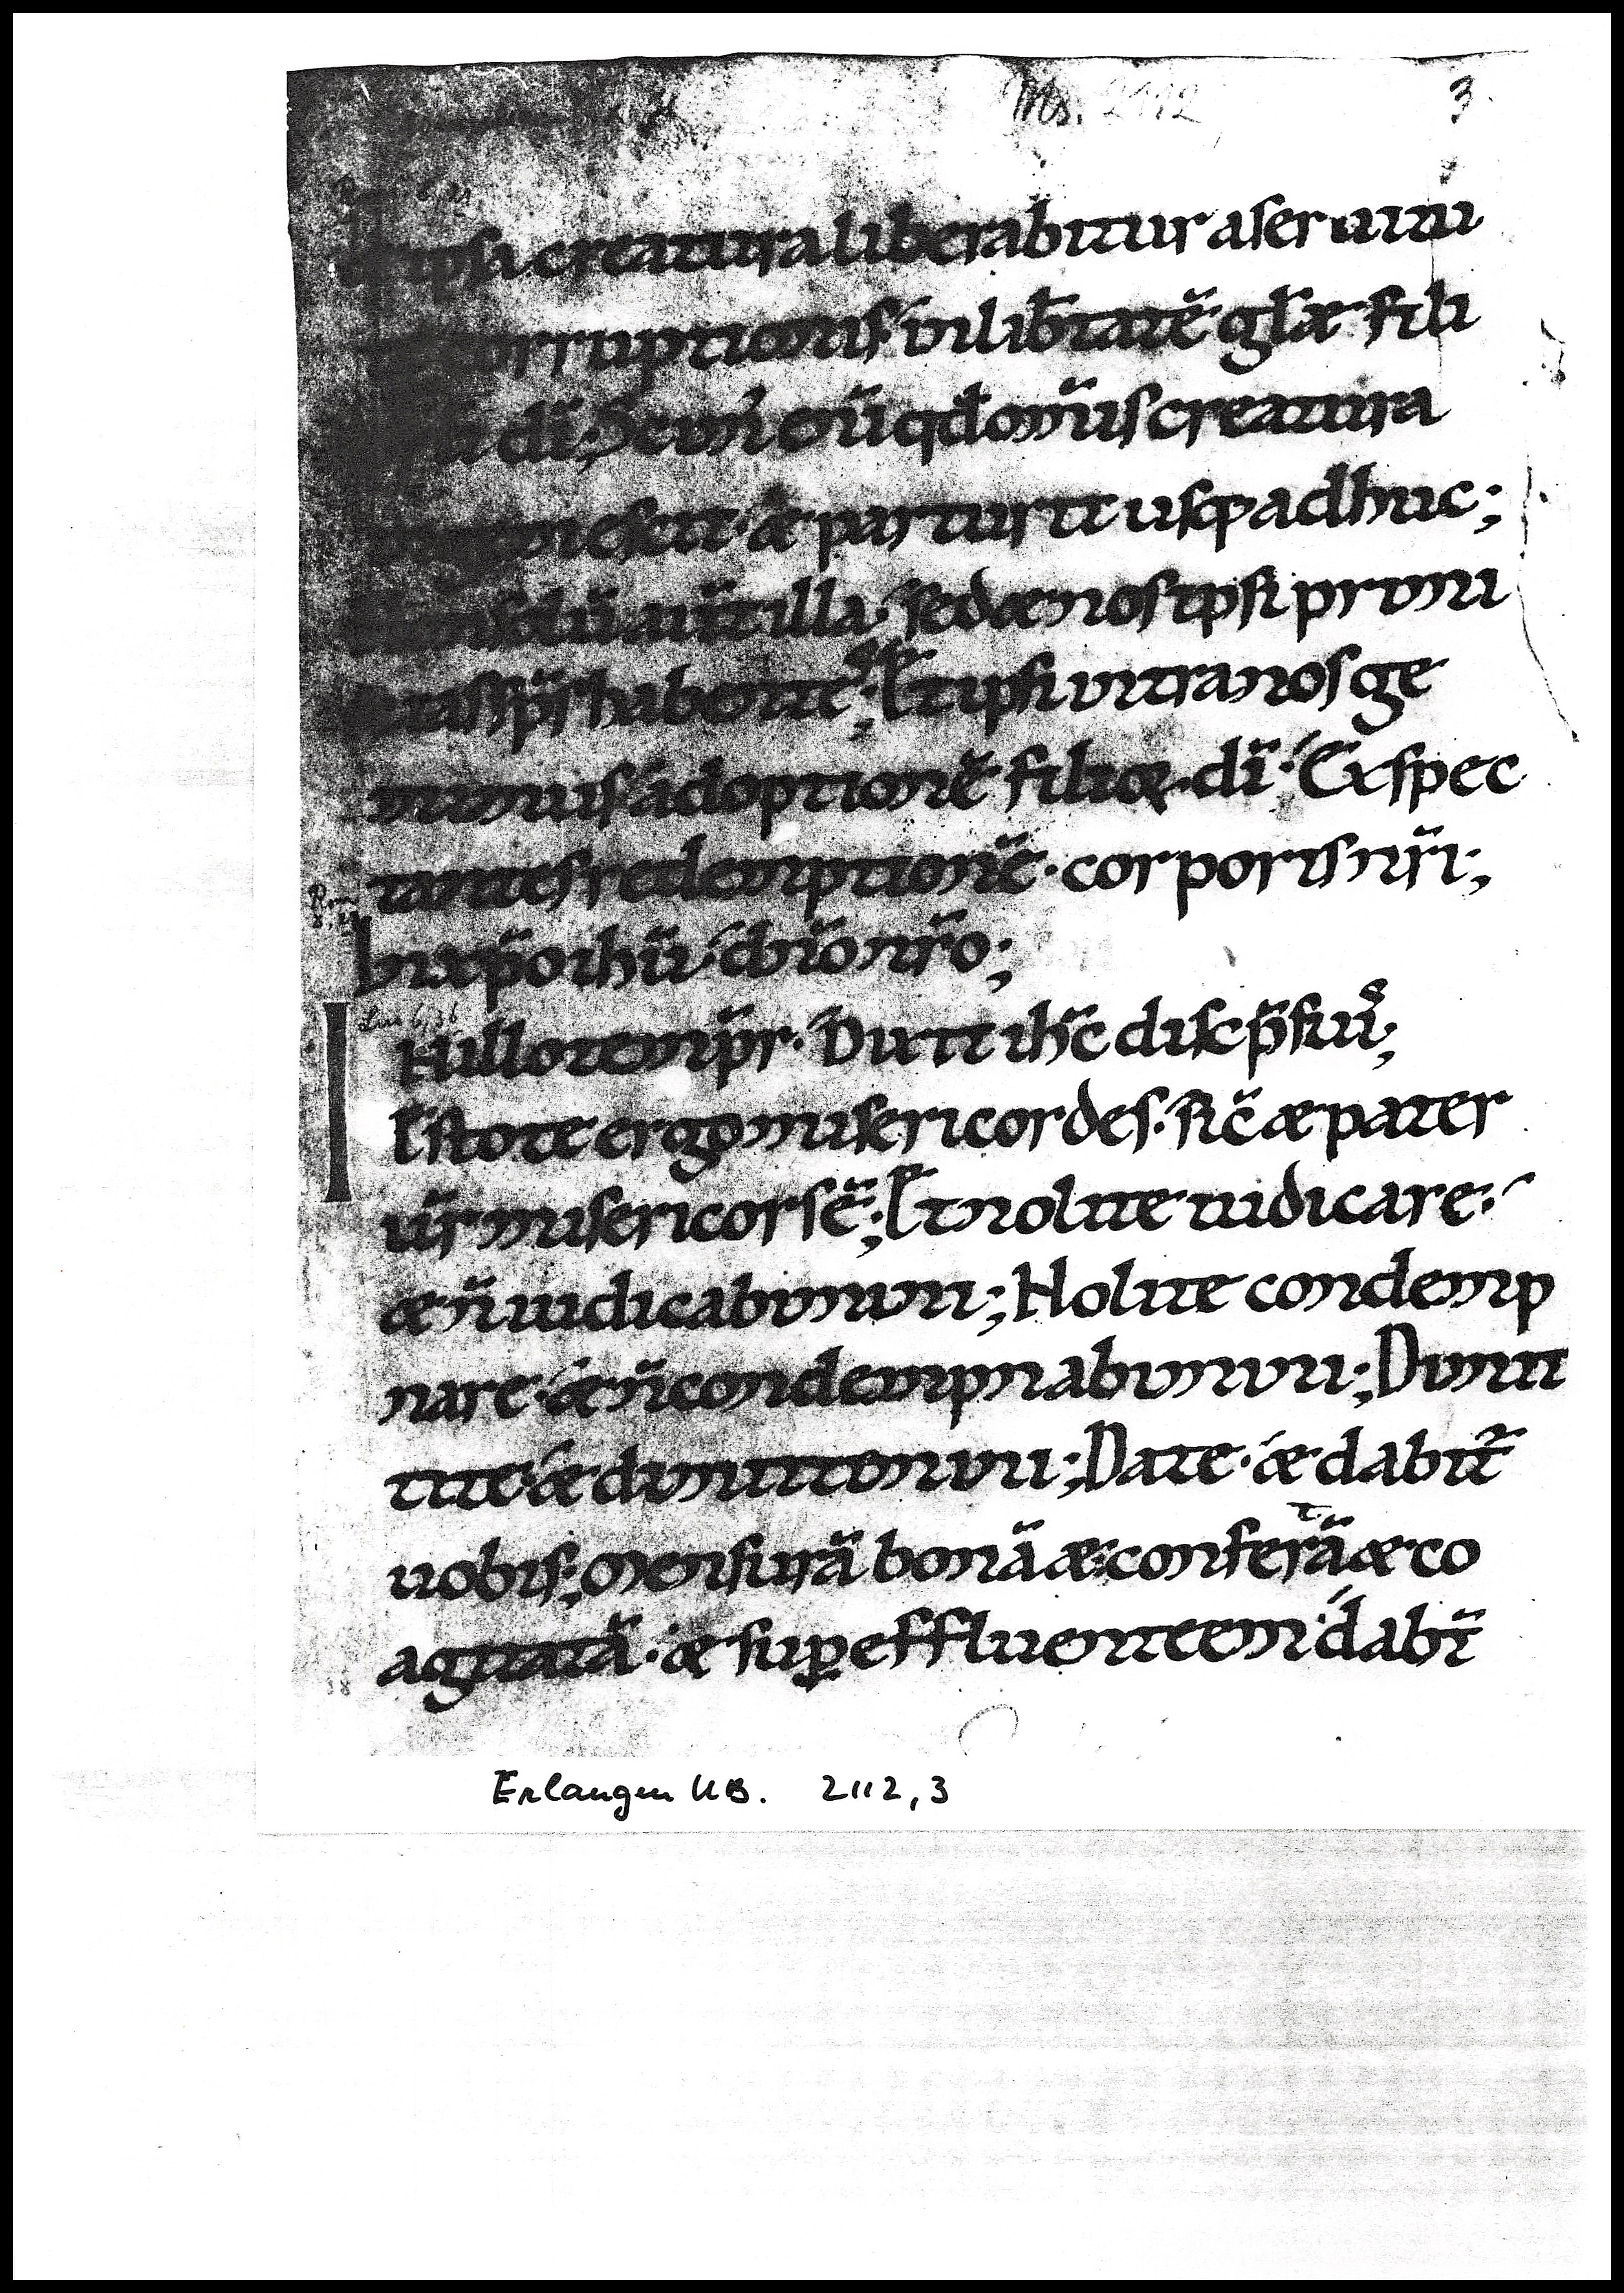 Ms. 2112 3.
ipsa creatura liberabitur a seruitu
corruptionis in lib̄tatē glæ fili
dī; Scim̄ eni qđ om̄is creatura
ingemescit · æ parturit usq; adhuc;
solū aūt illa · sed æ nos ipsi primi
tias sp̄s habente͛s; Et ipsi intra nos ge
mimus adoptionē filioꝝ dī · Expec
tantes redemptionē · corporis nr̄i;
Rom 8,23
In xp̄o ihū dn̄o nr̄o;
Luc 6,36
IN illo temp̄r · Dixit ihc̄ discp̄sui͛s;
Estote ergo misericordes · sic̄ æ pater
ūr misericors ē; Et nolite iudicare ·
æ n̄ iudicabimini; Nolite condemp
nare · æ n̄ condempnabimini; Dimit
tite · æ dimittemini; Date · æ dabit᷑
uobis; Mensurā bonā æ conferᵗā æ co
agitatā · æ suꝑeffluentem dabt̄
38
Erlangen UB. 2112,3